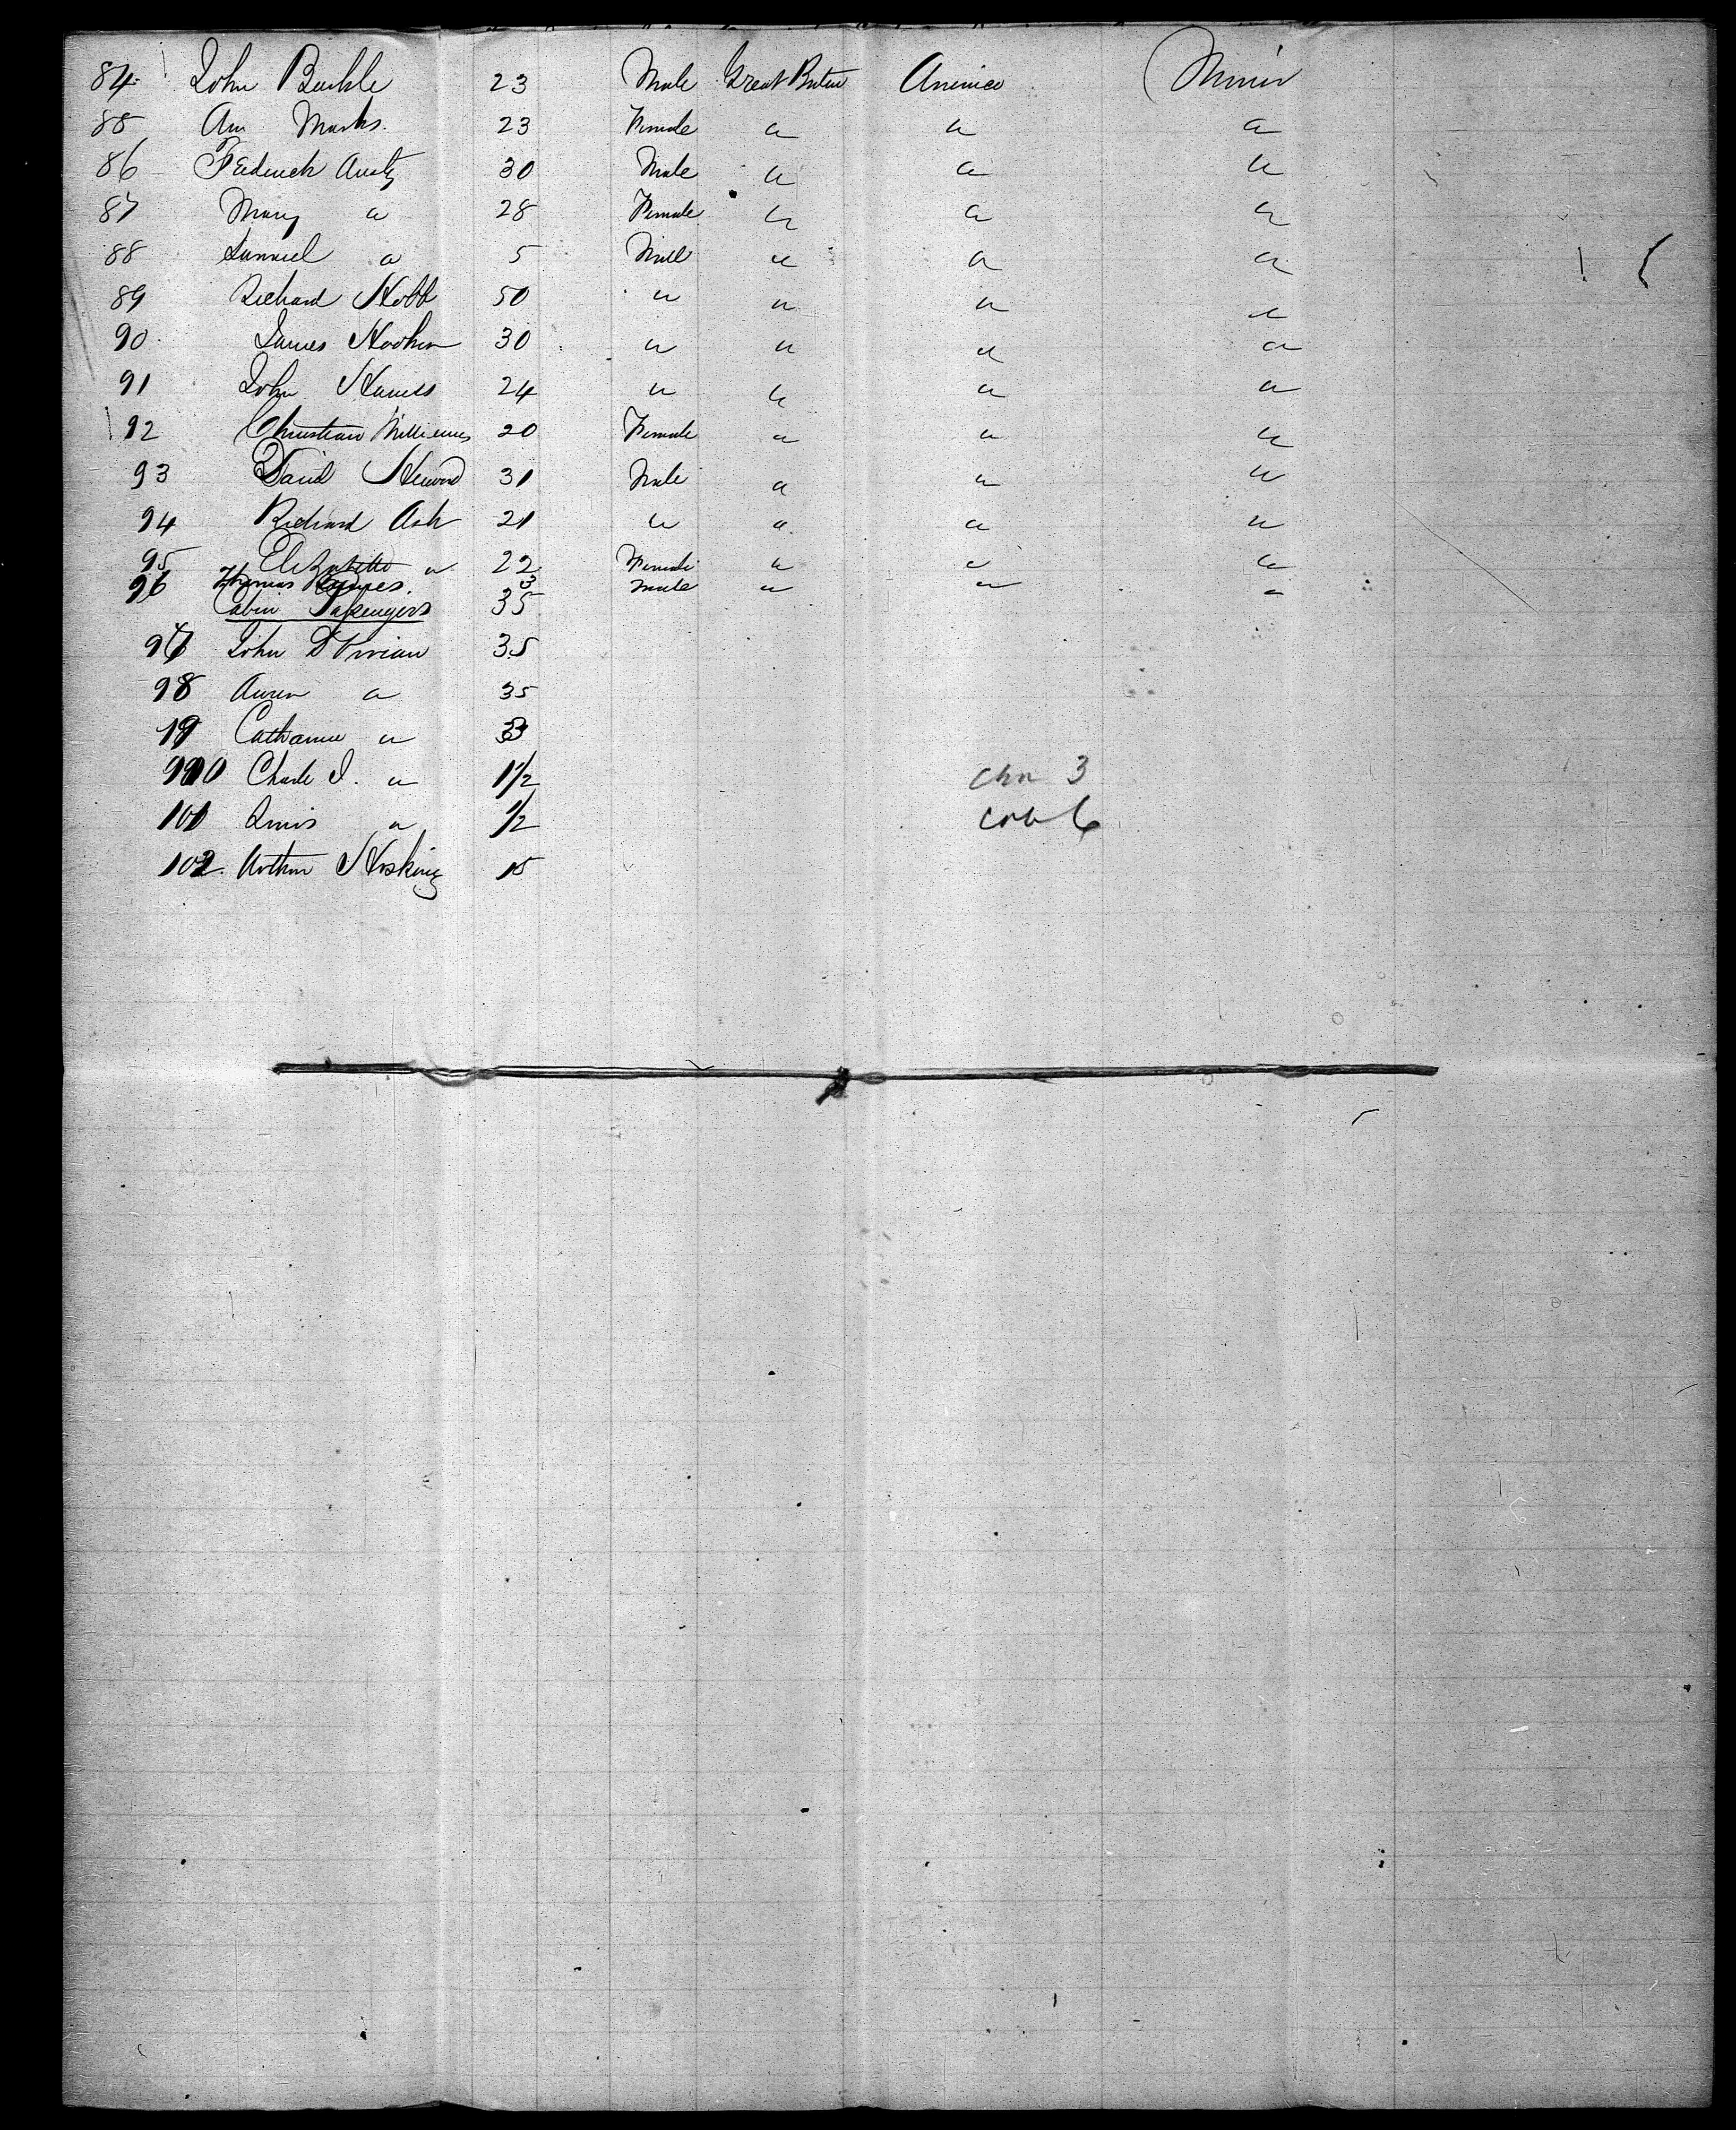 84 John Buckle 23 Male Great Britain America Minér
85 Ann Marks. 23 Female " " "
86 Frederick Austy 30 Male " " "
87 Mary " 28 Female " " "
88 Samuel " 5 Male " " "
89 Richard Hobb 50 " " " "
90 James Hocken 30 " " " "
91 John James 24 " " " "
92 Christian Williams 20 Female " " "
93 David Heward 31 Male " " "
94 Richard Ash 21 " " " "
95 Elizabeth " 22 Female " " "
96 Thomas Male " " "
Cabin Passengers 35
97 John D Vivian 35
98 " 35
Catharine " 3
100 Charle J. " 1 1/2
101 " 1/2
102. Arthur Hosking 15
chn 3
cab 6